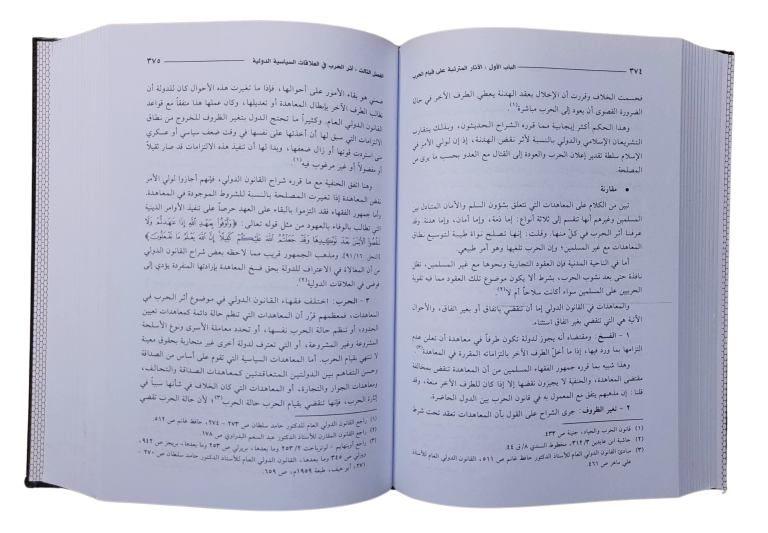 ٣٧٤ الباب الأول : الآثار المترتبة على قيام الحرب
فحسمت الخلاف وقررت أن الإخلال بعقد الهدنة يعطي الطرف الآخر في حال
الضرورة القصوى أن يعود إلى الحرب مباشرة(١).
وهذا الحكم أكثر إيجابية مما قرره الشراح الحديثيون، وبذلك يتقارب
التشريعان الإسلامي والدولي بالنسبة لأثر نقض الهدنة، إذ إن لولي الأمر في
الإسلام سلطة تقدير إعلان الحرب والعودة إلى القتال مع العدو بحسب ما يرى من
المصلحة.
• مقارنة
تبين من الكلام على المعاهدات التي تتعلق بشؤون السلم والأمان المتبادل بين
المسلمين وغيرهم أنها تنقسم إلى ثلاثة أنواع: إما ذمة، وإما أمان، وإما هدنة. وقد
عرفنا أثر الحرب في كلٍّ منها. وقلت: إنها تصلح نواة طيبة لتوسيع نطاق
المعاهدات مع غير المسلمين؛ وإن الحرب تنفيها وهو أمر طبيعي.
أما في الناحية المدنية فإن العقود التجارية ونحوها مع غير المسلمين، تظل
نافذة حتى بعد نشوب الحرب، بشرط ألا يكون موضوع تلك العقود مما فيه تقوية
الحربيين على المسلمين سواء أكانت سلاحاً أم لا(٢).
والمعاهدات في القانون الدولي إما أن تنقضي باتفاق أو بغير اتفاق، والأحوال
الآتية هي التي تنقضي بغير اتفاق استثناء.
١ - الفسخ. ومقتضاه أنه يجوز لدولة تكون طرفاً في معاهدة أن تعلن عدم
التزامها بما ورد فيها، إذا ما أخلَّ الطرف الآخر بالتزاماته المقررة في المعاهدة(٣).
وهذا شبيه بما قرره جمهور الفقهاء المسلمين من أن المعاهدة تنقض بمخالفة
مقتضى المعاهدة، والحنفية لا يجيزون نقضها إلا إذا كان للطرف الآخر منعة، وقد
قلنا : إن مذهبهم يتفق مع المعمول به في قانون الحرب بين الدول الحاضرة.
٢ - تغير الظروف: جرى الشراح على القول بأن المعاهدات تعقد تحت شرط
(١) قانون الحرب والحياد، جنينة ص ٤٣٣
(٢) حاشية ابن عابدين ٣/٣١٢، مخطوط السندي ٨/ق ٤٤.
(٣) مبادئ القانون الدولي العام للأستاذ الدكتور حافظ غانم ص ٥١١، القانون الدولي العام للأستاذ
علي ماهر ص ٤٦١.
الفصل الثالث : أثر الحرب في العلاقات السياسية الدولية ٣٧٥
ضمني هو بقاء الأمور على أحوالها، فإذا ما تغيرت هذه الأحوال كان للدولة أن
تطالب الطرف الآخر بإبطال المعاهدة أو تعديلها، وكان عملها هذا متفقاً مع قواعد
القانون الدولي العام. وكثيراً ما تحتج الدول بتغير الظروف للخروج من نطاق
الالتزامات التي سبق لها أن أخذتها على نفسها في وقت ضعف سياسي أو عسكري
متى استردت قوتها أو زال ضعفها، وبدا لها أن تنفيذ هذه الالتزامات قد صار ثقيلاً
أو مفضولاً أو غير مرغوب فيه(١).
وهنا اتفق الحنفية مع ما قرره شراح القانون، فإنهم أجازوا لولي الأمر
نقض المعاهدة إذا تغيرت المصلحة بالنسبة للشروط الموجودة في المعاهدة.
وأما جمهور الفقهاء فقد التزموا بالبقاء على العهد حرصاً على تنفيذ الأوامر الدينية
التي تطالب بالوفاء بالعهود من مثل قوله تعالى: ﴿وَأَوْفُوا بِعَهْدِ اللَّهِ إِذَا عَاهَدتُّمْ وَلَا
تَنقُضُوا الْأَيْمَانَ بَعْدَ تَوْكِيدِهَا وَقَدْ جَعَلْتُمُ اللَّهَ عَلَيْكُمْ كَفِيلًا إِنَّ اللَّهَ يَعْلَمُ مَا تَفْعَلُونَ﴾
[النحل: ١٦/٩١]. ومذهب الجمهور قريب مما لاحظه بعض شراح القانون الدولي
من أن المغالاة في الاعتراف للدولة بحق فسخ المعاهدة بإرادتها المنفردة يؤدي إلى
فوضى في العلاقات الدولية(٢).
٣ - الحرب: اختلف فقهاء القانون الدولي في موضوع أثر الحرب في
المعاهدات، فمعظمهم قرر أن المعاهدات التي تنظم حالة دائمة كمعاهدات تعيين
الحدود، أو تنظم حالة الحرب نفسها، أو تحدد معاملة الأسرى ونوع الأسلحة
المشروعة وغير المشروعة، أو التي تعترف لدولة أخرى غير متحاربة بحقوق معينة
لا تنتهي بقيام الحرب. أما المعاهدات السياسية التي تقوم على أساس من الصداقة
وحسن التفاهم بين الدولتين المتعاقدتين كمعاهدات الصداقة والتحالف،
ومعاهدات الجوار والتجارة، أو المعاهدات التي كان الخلاف في شأنها سبباً في
إثارة الحرب، فإنها تنقضي بقيام الحرب حالة الحرب(٣)؛ لأن حالة الحرب تقضي
(١) راجع القانون الدولي العام للدكتور حامد سلطان ص ٢٧٣ - ٢٧٤، حافظ غانم ص ٥١٢.
(٢) راجع القانون المقارن للأستاذ الدكتور عبد المنعم البدراوي ص ١٧٨.
(٣) راجع أوبنهايم - لوترباخت ٢/٢٥٣ وما بعدها، بريرلي ص ٢٥٣ وما بعدها، بريجز ص ٩٤٢،
ويزلي ص ٣٤٥ وما بعدها، القانون الدولي العام للأستاذ الدكتور حامد سلطان ص ٢٧٠ -
٢٧١، أبو هيف، طبعة ١٩٥٩م، ص ٦٥٩.